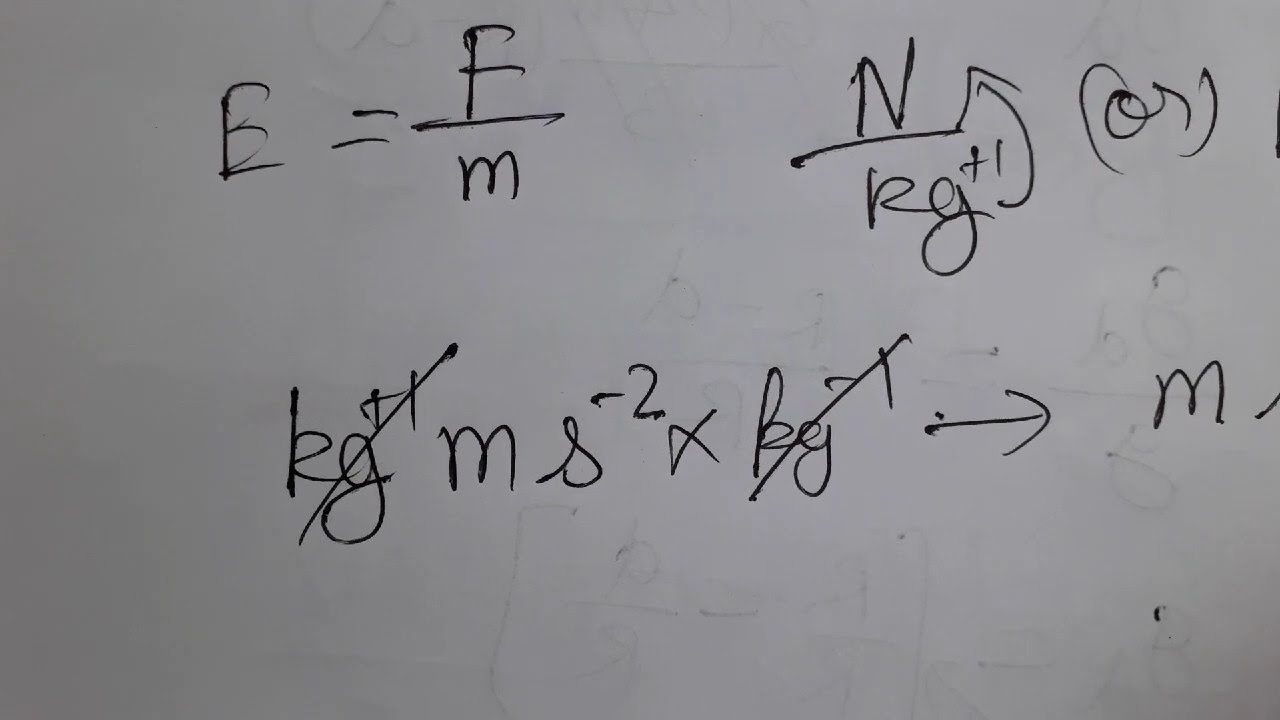 E = F/m N/kg⁺¹ (or)
kg⁺¹ m s⁻² × kg⁻¹ → m